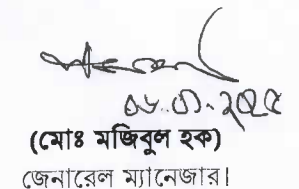 ০৬.০১.২০২৫
(মোঃ মজিবুল হক)
জেনারেল ম্যানেজার।